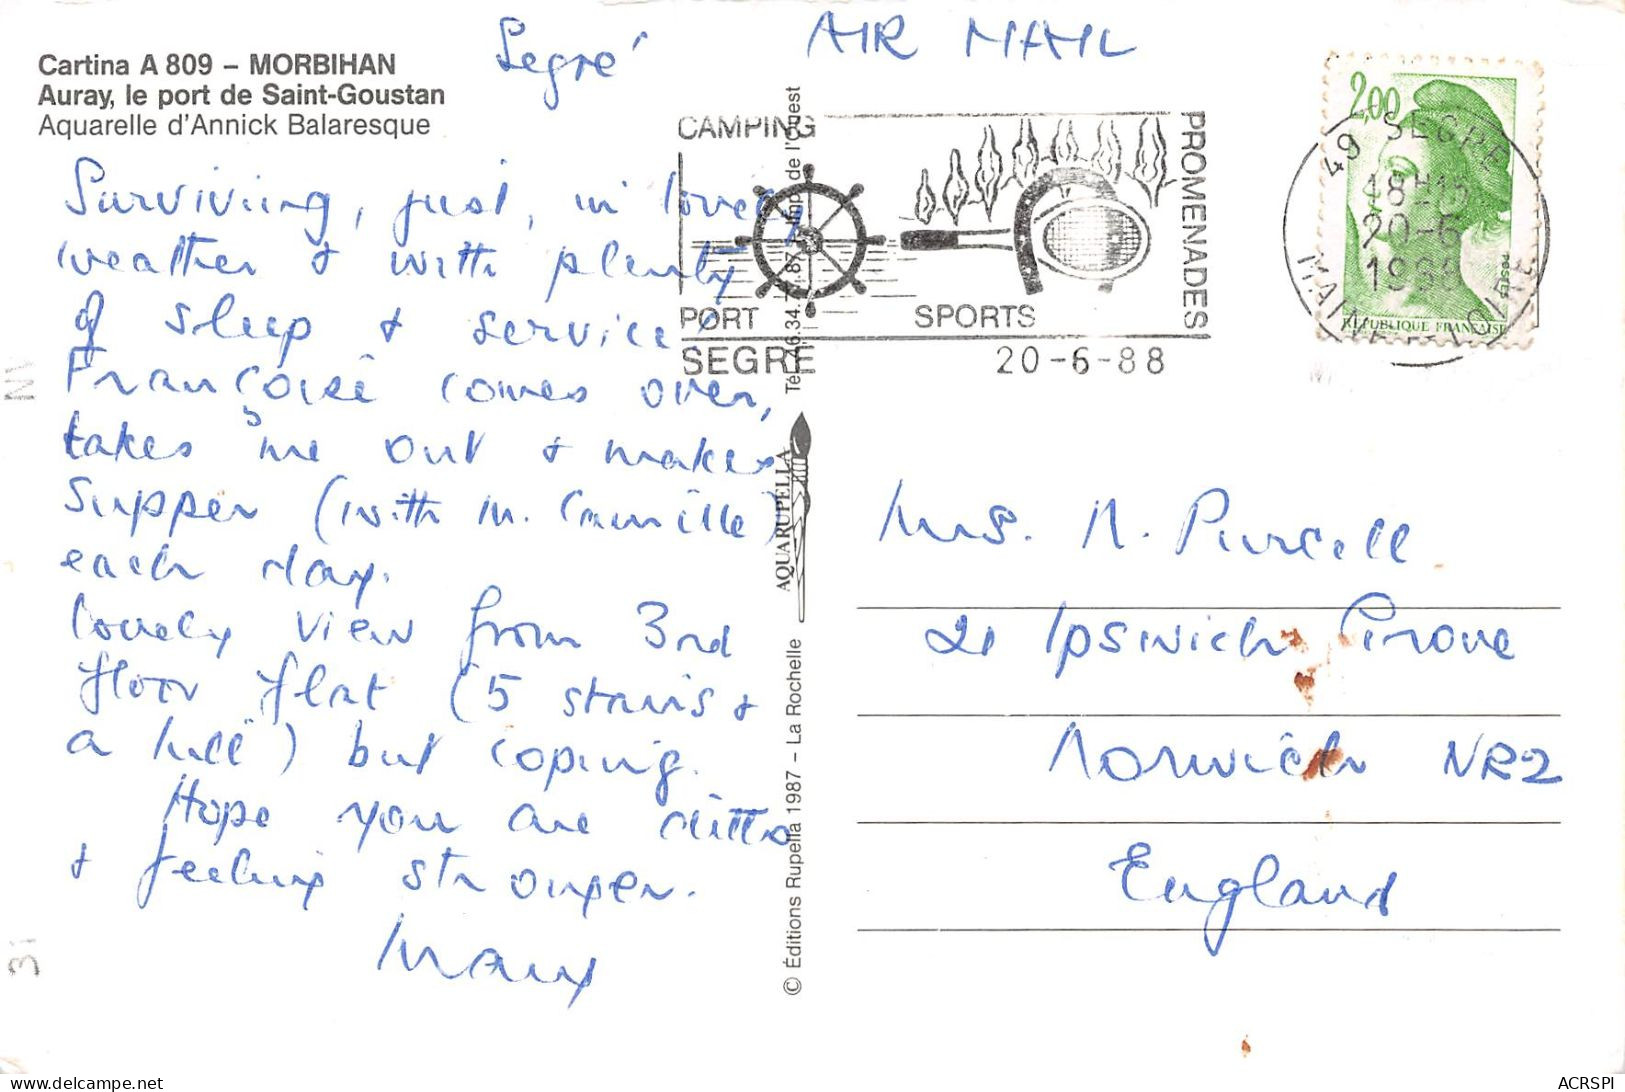 Cartina A 809 – MORBIHAN
Auray, le port de Saint-Goustan
Aquarelle d'Annick Balaresque
Segré
AIR MAIL
Surviving, just, in lovely
weather & with plenty
of sleep & service!
Françoise comes over,
takes me out & makes
supper (with M. Camille)
each day.
Lovely view from 3rd
floor flat (5 stairs &
a hill) but coping.
Hope you are ditto
& feeling stronger.
Mary
CAMPING
PORT
SPORTS
PROMENADES
SEGRE
20-6-88
2,00
REPUBLIQUE FRANÇAISE
49 SEGRE
18H15
20-6
1988
MAINE ET LOIRE
Imp. de l'Ouest
AQUARUPELLA
© Éditions Rupella 1987 – La Rochelle
Mrs. M. Purcell
21 Ipswich Grove
Norwich NR2
England
ACRSPI